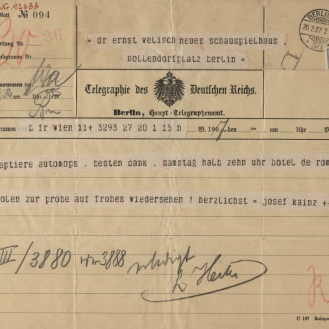 Blatt Nr 094
= dr ernst welisch neues schauspielhaus
nollendorfplatz berlin =
BERLIN
Telegraphie des Deutschen Reichs.
Berlin, Haupt-Telegraphenamt.
t fr wien 11+ 3293 27 20 1 15 n 190
eptiere automops . besten dank . samstag halb zehn uhr hotel de rom
olen zur probe auf frohes wiedersehen ! herzlichst = josef kainz +
III/3880 3888 erledigt
C 187